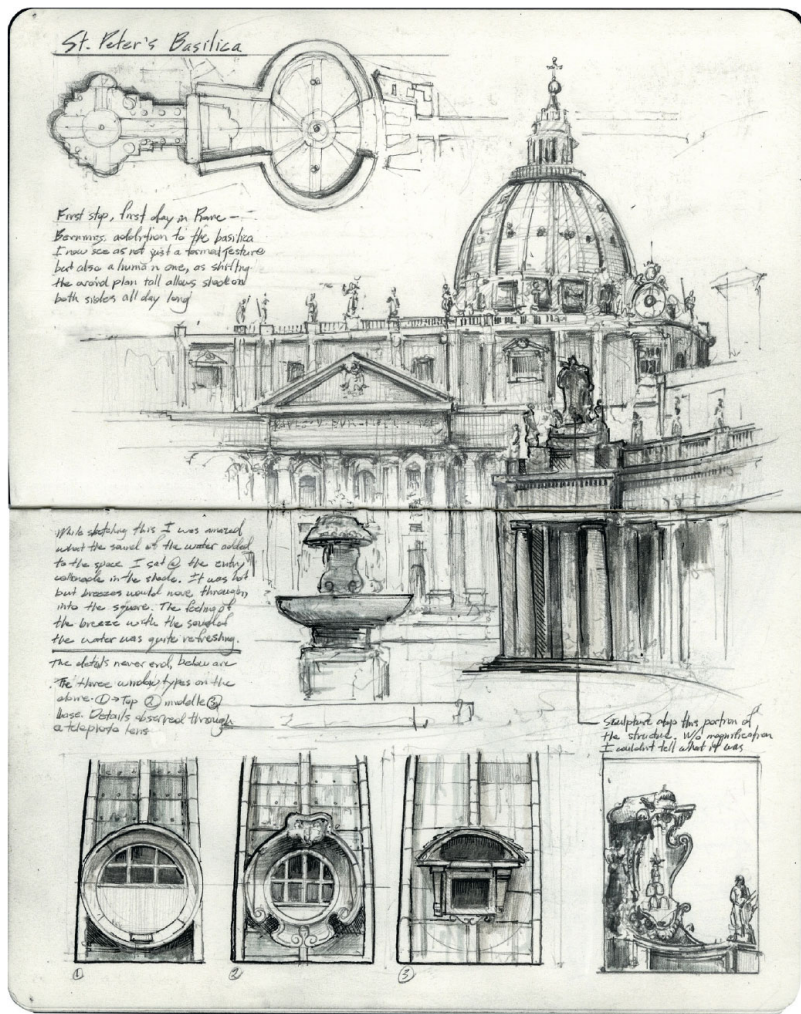 St. Peter's Basilica
First stop, first day in Rome —
Bernini's addition to the basilica
I now see as not just a formal gesture
but also a human one, as shifting
the ovoid plan tall allows shade on
both sides all day long
While sketching this I was amazed
what the sound of the water added
to the space. I sat @ the entry
colonnade in the shade. It was hot
but breezes would move through,
into the square. The feeling of
the breeze with the sound of
the water was quite refreshing.
The details never end, below are
The three window types on the
dome. ① → Top ② middle ③
base. Details observed through
a telephoto lens
Sculpture atop this portion of
the structure. W/o magnification
I couldn't tell what it was
①
②
③